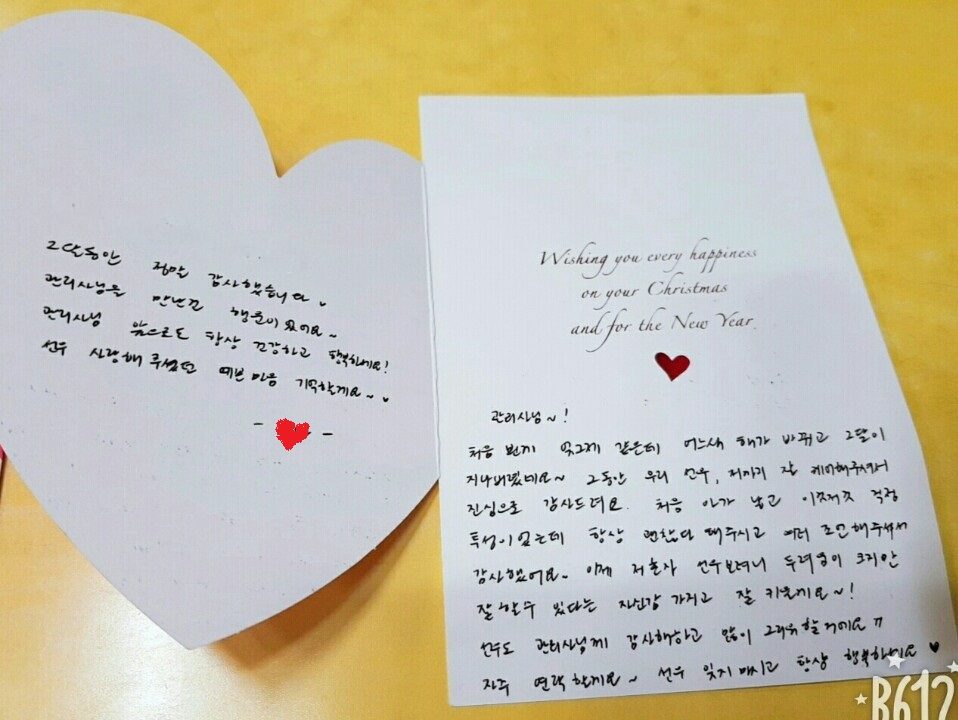 2달동안 정말 감사했습니다
관리사님을 만난건 행운이었어요~
관리사님 앞으로도 항상 건강하고 행복하세요!
선우 사랑해주셨던 예쁜마음 기억할게요~
Wishing you every happiness
on your Christmas
and for the New Year
관리사님~!
처음 뵌지 엊그제 같은데 어느새 해가 바뀌고 2달이
지나버렸네요~ 그동안 우리 선우, 저까지 잘 케어해주셔서
진심으로 감사드려요. 처음 아가 낳고 이것저것 걱정
투성이었는데 항상 괜찮다 해주시고 여러 조언해주셔서
감사했어요~ 이제 저혼자 선우보려니 두려움이 크지만
잘할수 있다는 자신감 가지고 잘 키울게요~!
선우도 관리사님께 감사해하고 많이 그리워할거에요 ㅠ
자주 연락할게요~ 선우 잊지마시고 항상 행복하세요
B612